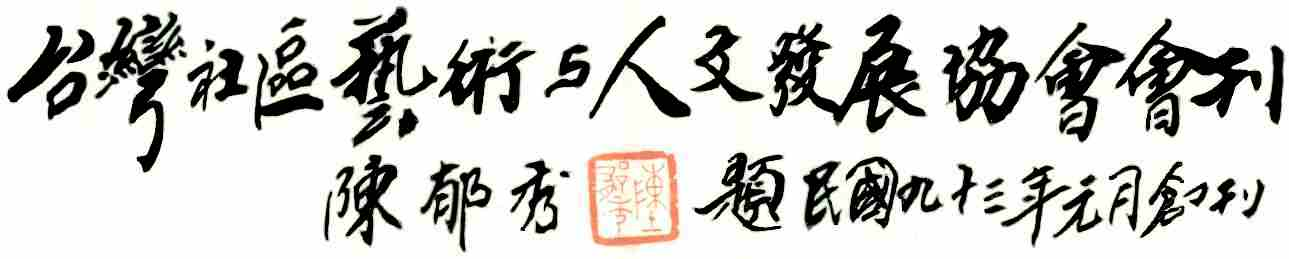 台灣社區藝術与人文發展協會會刊
陳郁秀 題 民國九十三年元月創刊